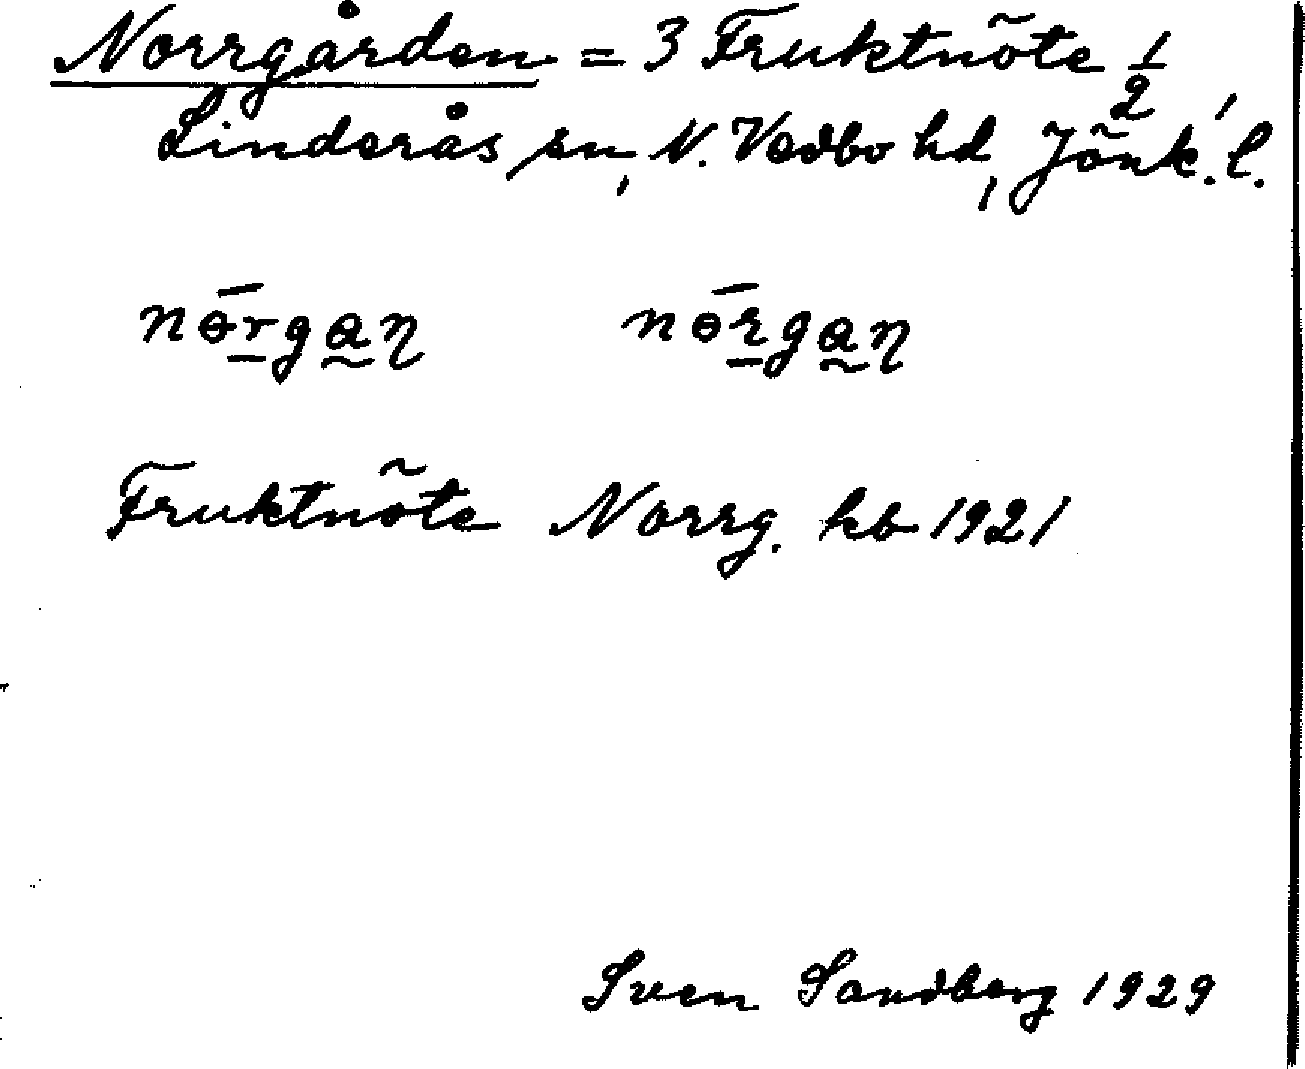 Norrgården = 3 Fruktnöte 1/2
Linderås sn, N. Vedbo hd, Jönk. l.
Fruktnöte Norrg. hb 1921
Sven Sandberg 1929